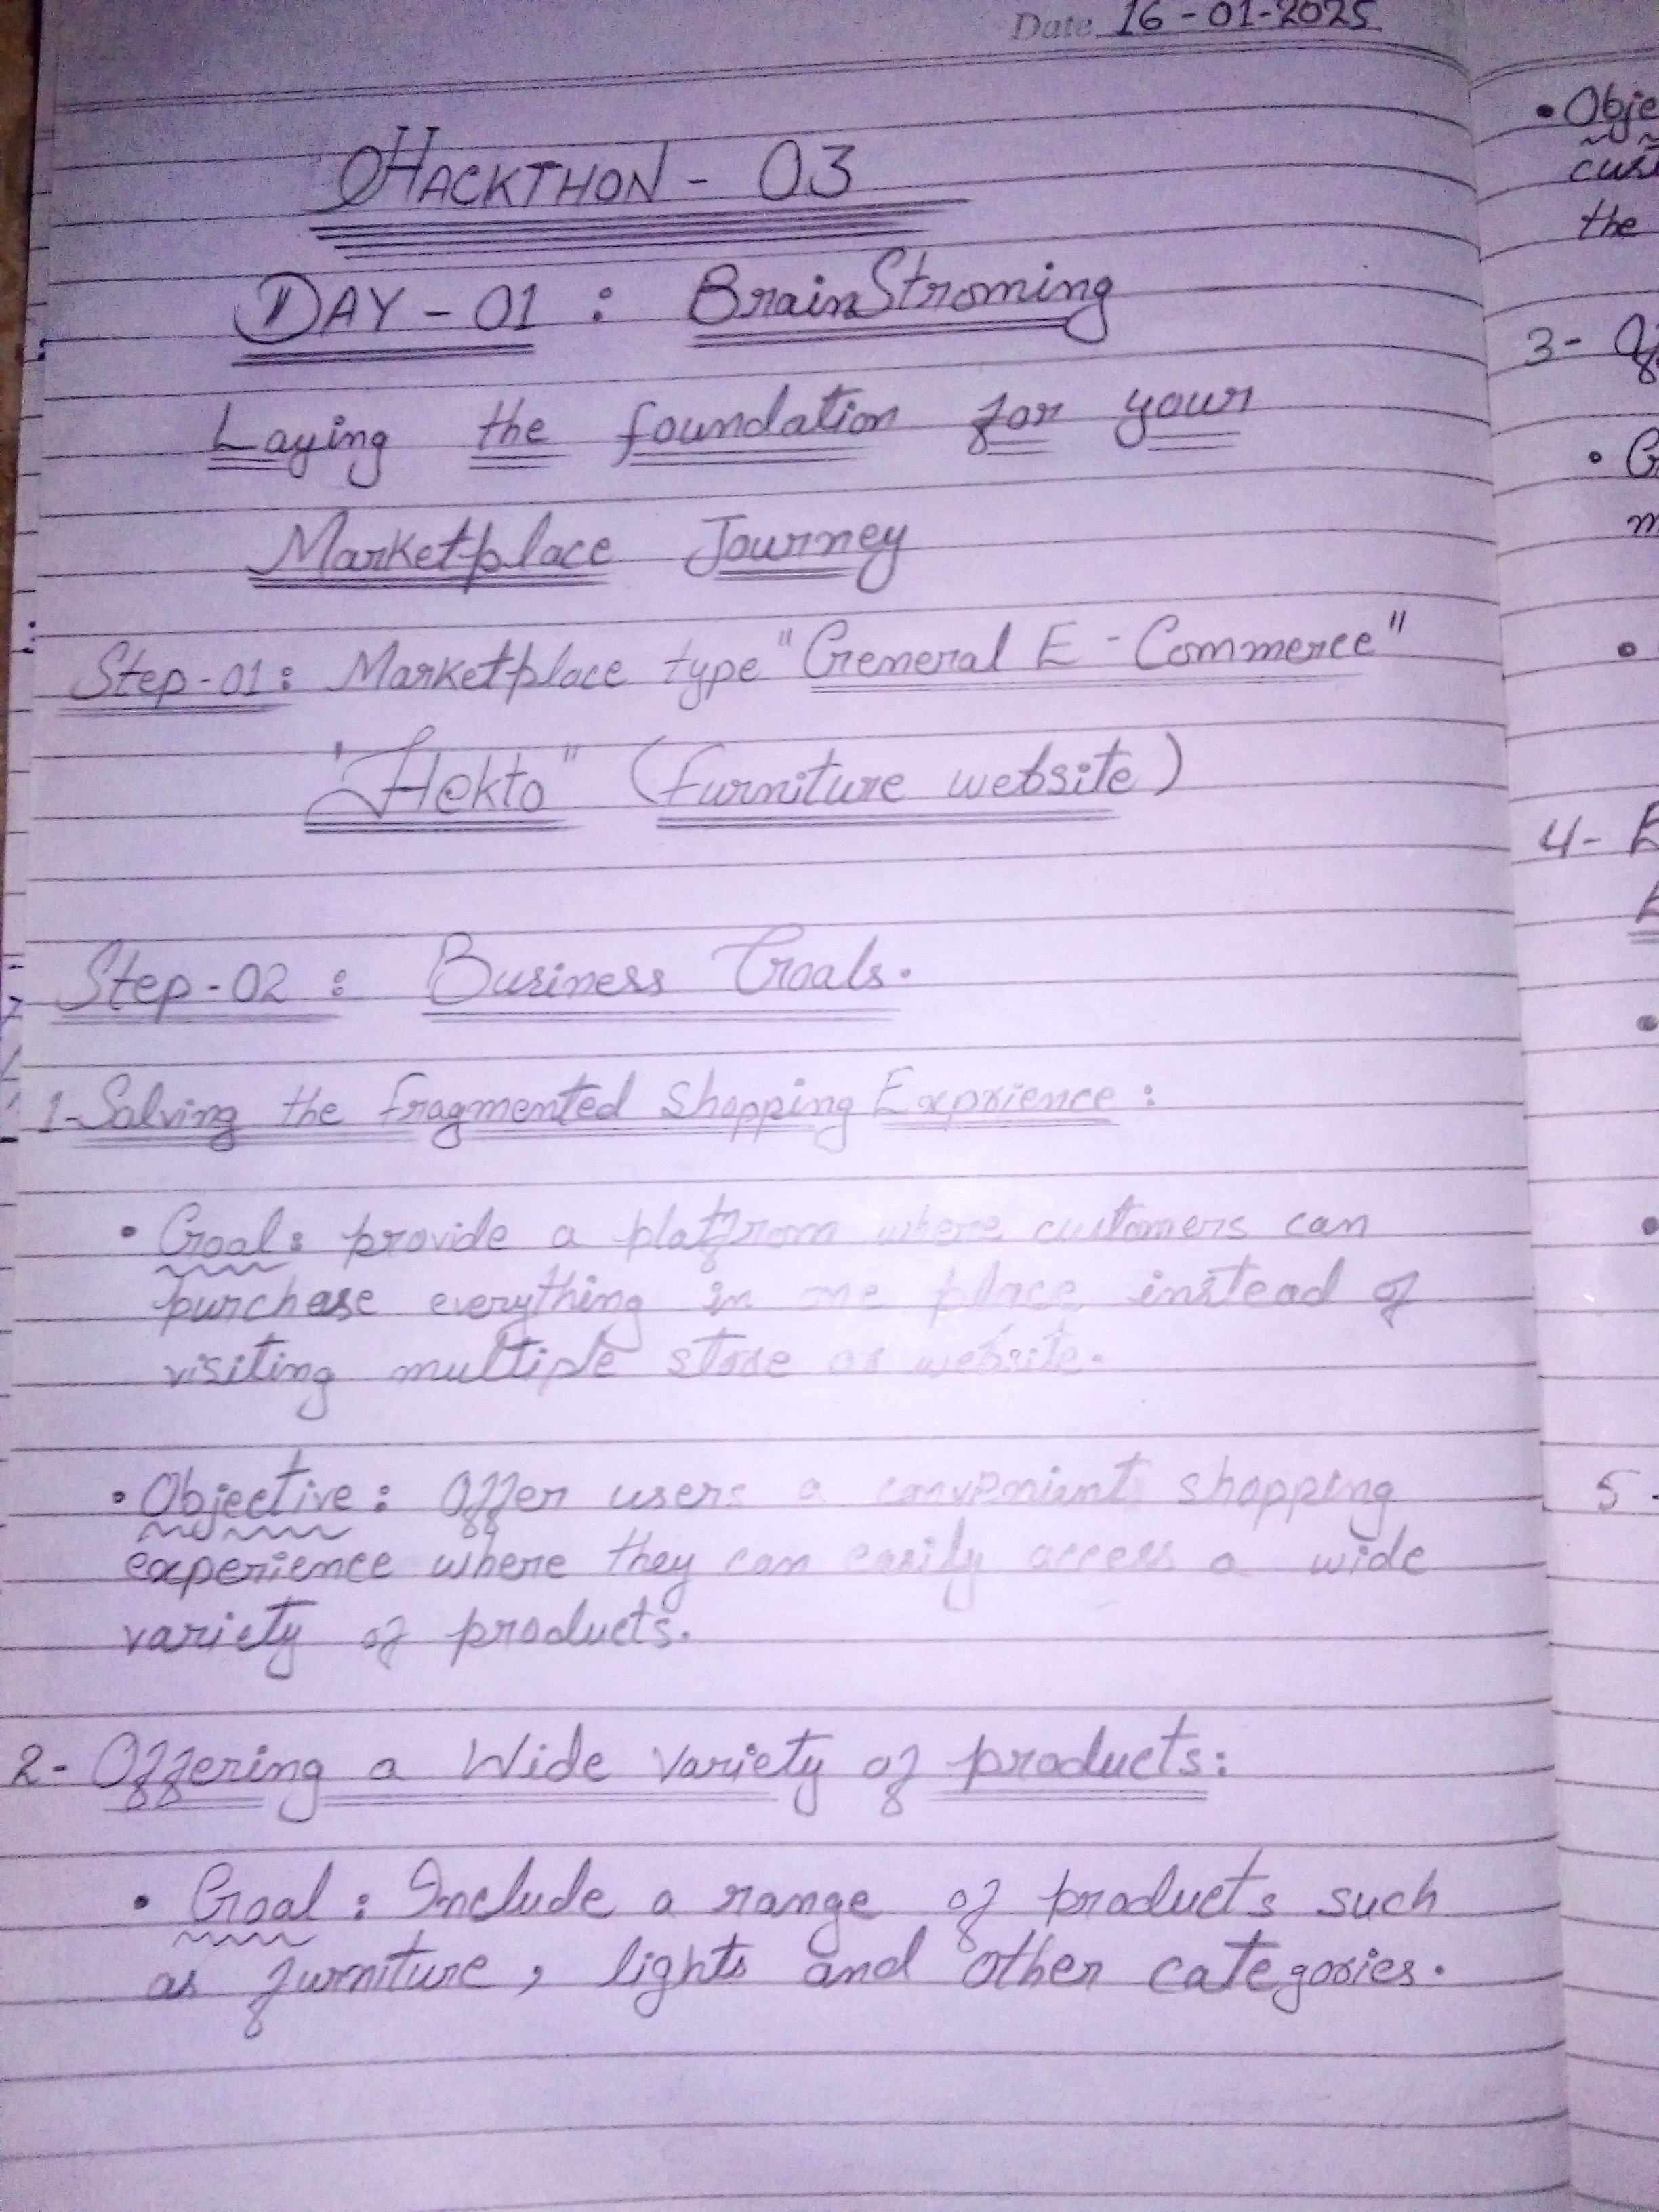 Date 16-01-2025
HACKTHON - 03
DAY - 01 : BrainStroming
Laying the foundation for your
Marketplace Journey
Step-01: Marketplace type "General E-Commerce"
"Hekto" (furniture website)
Step-02 : Business Goals.
1-Solving the fragmented shopping Exprience :
• Goal: provide a platfrom where customers can
purchase everything in one place instead of
visiting multiple store or website.
• Objective: Offer users a convenient shopping
experience where they can easily access a wide
variety of products.
2- Offering a Wide variety of products:
• Goal : Include a range of products such
as furniture, lights and other categories.
• Obje
the
3-
4- E
5-